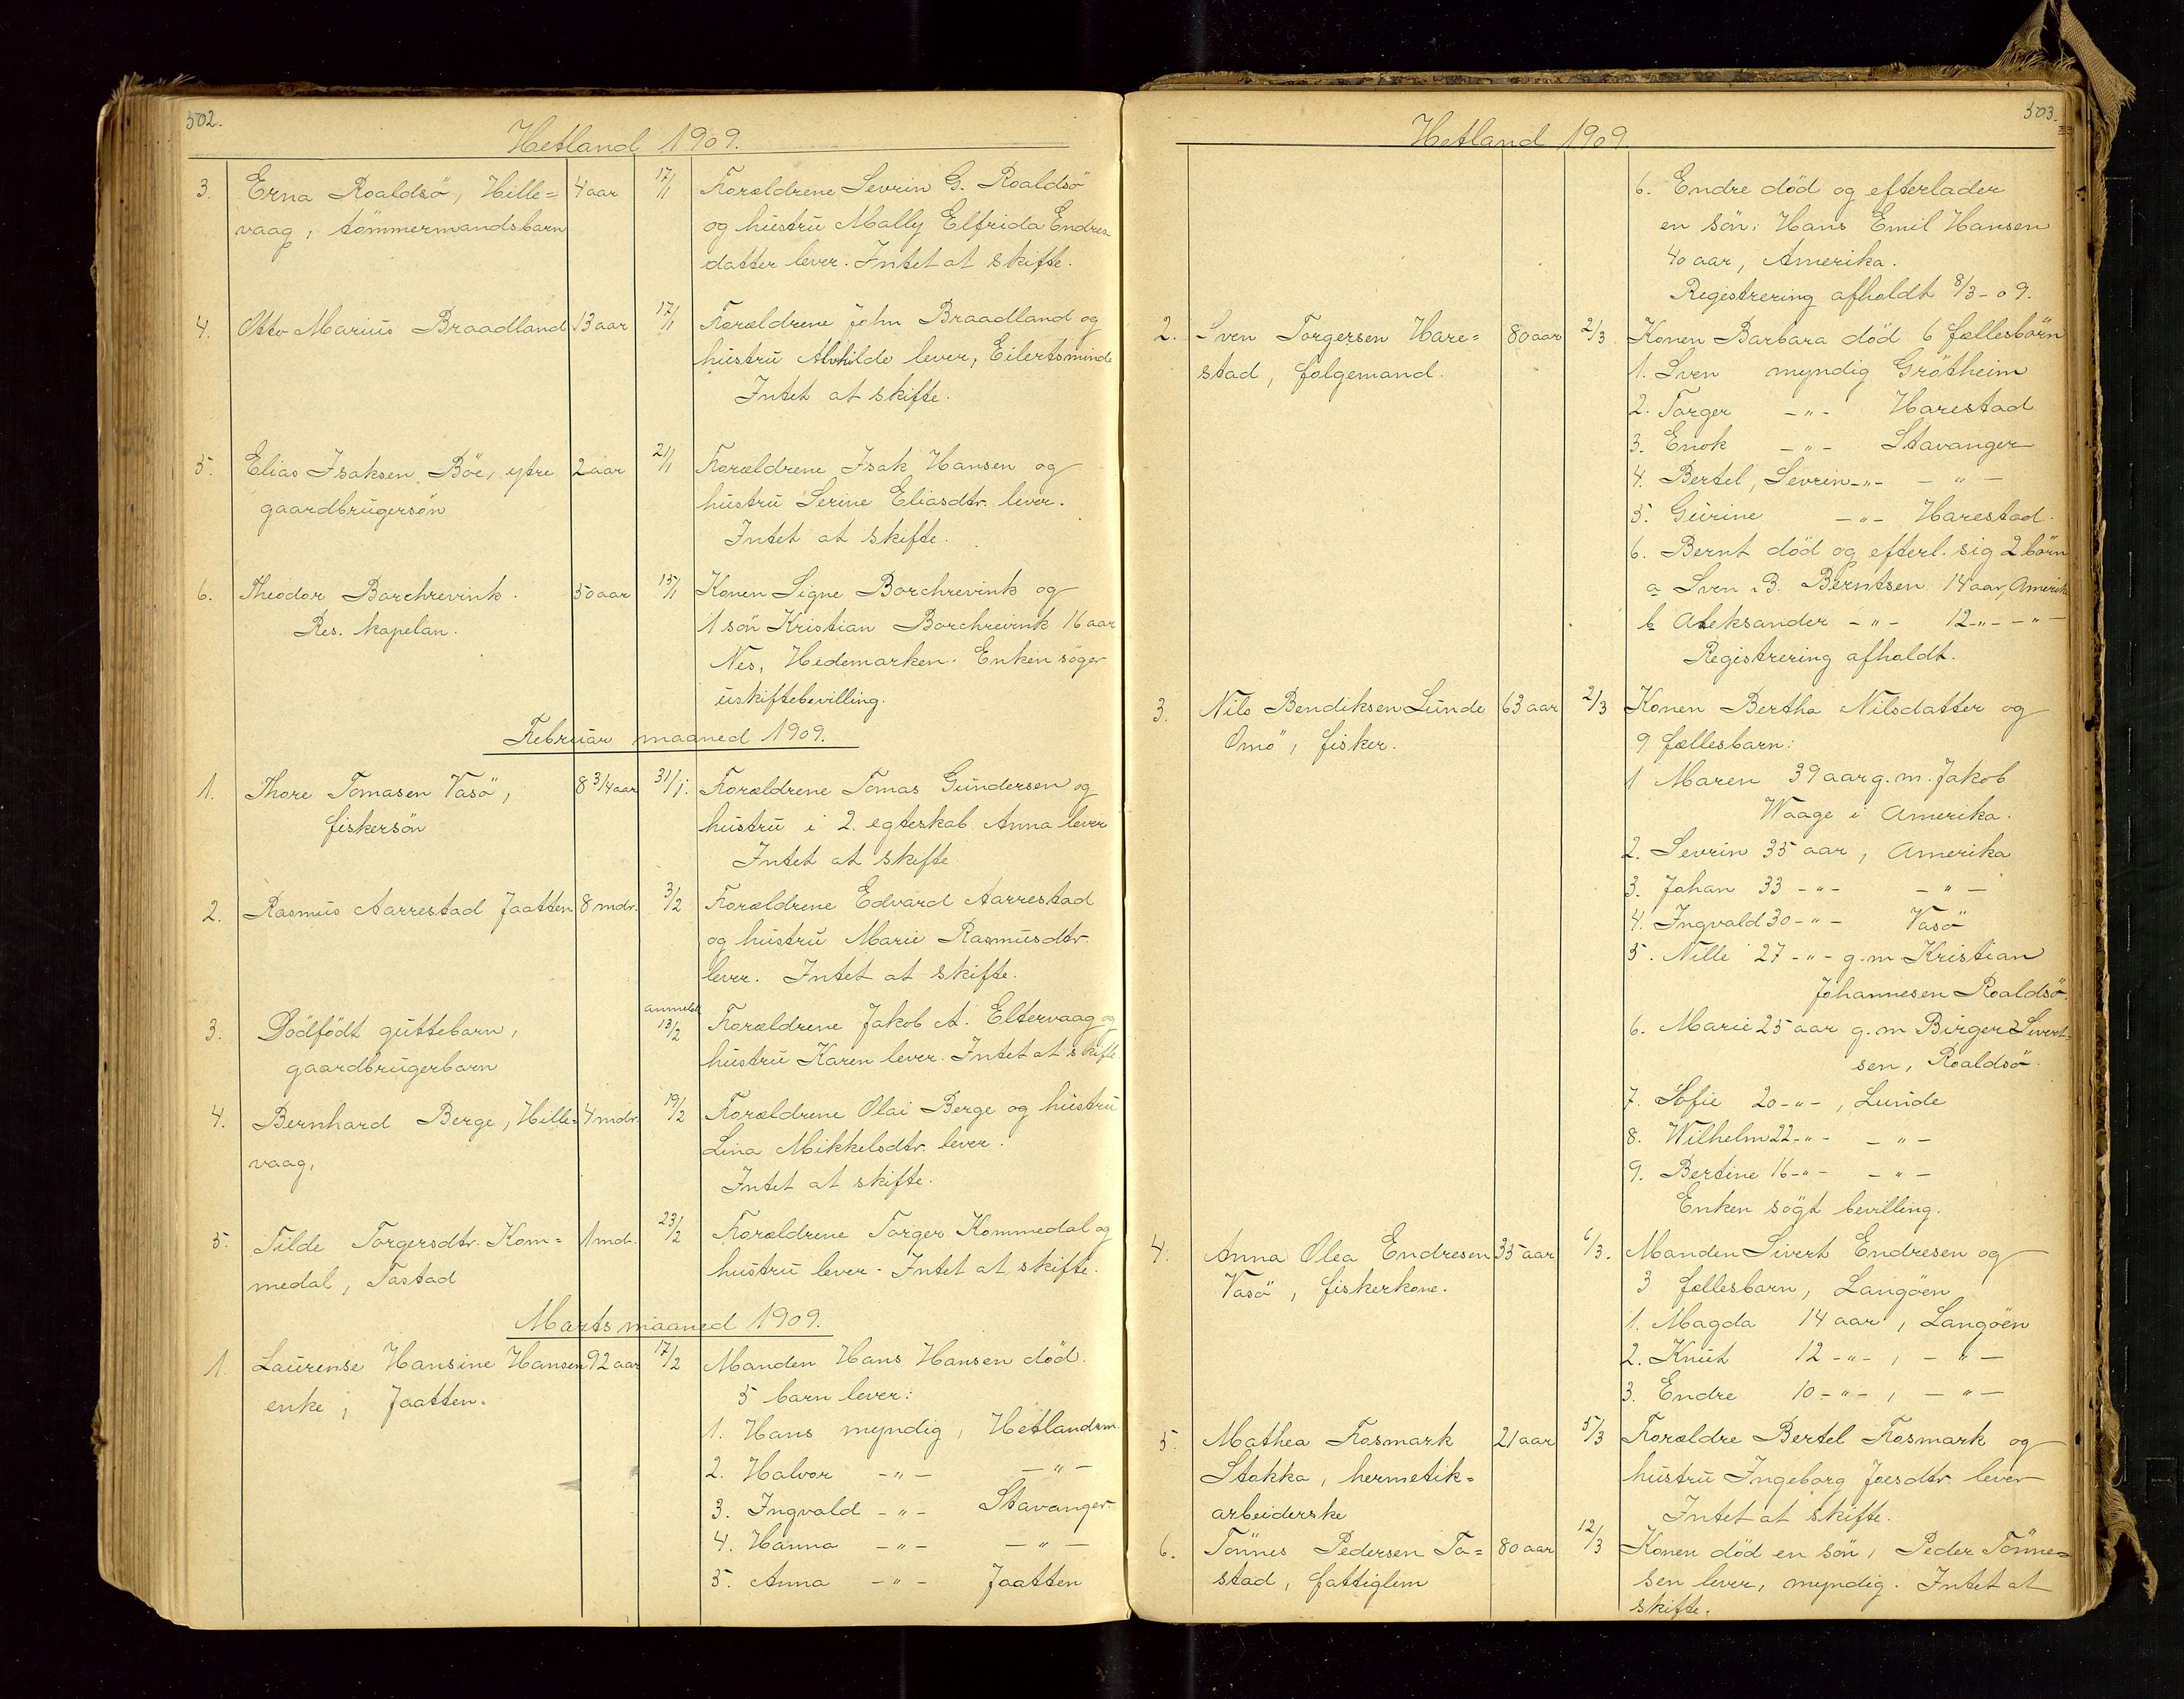 502.
Hetland 1909.
3. Erna Roaldsö, Hille= 4 aar 17/1 Forældrene Sevrin G. Roaldsö
vaag, tömmermandsbarn og hustru Mally Elfrida Endres
datter lever. Intet at skifte.
4. Otto Marius Braadland 13 aar 17/1 Forældrene John Braadland og
hustru Alvhilde lever, Eilertsminde
Intet at skifte.
5. Elias Isaksen Böe, ytre 2 aar 21/1 Forældrene Isak Hansen og
gaardbrugersön hustru Serine Eliasdtr. lever.
Intet at skifte.
6. Theodor Borchrevink. 50 aar 15/1 Konen Signe Borchrevink og
Res. kapelan. 1 sön Kristian Borchrevink 16 aar
Nes, Hedemarken. Enken söger
uskiftebevilling.
Februar maaned 1909.
1. Thore Tomasen Vasö, 8 3/4 aar 31/1. Forældrene Tomas Gundersen og
fiskersön hustru i 2. egteskab Anna lever
Intet at skifte
2. Rasmus Aarrestad Jaatten 8 mdr. 3/2 Forældrene Edvard Aarrestad
og hustru Marie Rasmusdtr.
lever. Intet at skifte.
3. Dödfödt guttebarn, anmeldt 13/2 Forældrene Jakob A. Eltervaag og
gaardbrugerbarn hustru Karen lever. Intet at skifte
4. Bernhard Berge, Hille= 4 mdr. 19/2 Forældrene Olai Berge og hustru
vaag, Lina Mikkelsdtr. lever.
Intet at skifte.
5. Tilde Torgersdtr. Kom= 1 mdr. 23/2 Forældrene Torger Kommedal og
medal, Tastad hustru lever. Intet at skifte.
Marts maaned 1909.
1. Laurense Hansine Hansen 92 aar 17/2 Manden Hans Hansen död.
enke, Jaatten. 5 barn lever:
1. Hans myndig, Hetlandsm.
2. Halvor -"- -"-
3. Ingvald -"- Stavanger
4. Hanna -"- -"-
5. Anna -"- Jaatten
503.
Hetland 1909.
6. Endre död og efterlader
en sön: Hans Emil Hansen
40 aar, Amerika.
Registrering afholdt 8/3-09.
2. Sven Torgersen Hare= 80 aar 2/3 Konen Barbara död 6 fællesbörn
stad, folgemand. 1. Sven myndig Grötheim
2. Torger -"- Harestad
3. Enok -"- Stavanger
4. Bertel, Sevrin -"- -"-
5. Gurine -"- Harestad.
6. Bernt död og efterl. sig 2 börn
a Sven B. Berntsen 14 aar, Amerik
b Aleksander -"- 12 -"- -"-
Registrering afholdt.
3. Nils Bendiksen Lunde 63 aar 2/3 Konen Bertha Nilsdatter og
Omö, fisker. 9 fællesbarn:
1 Maren 39 aar g.m. Jakob
Waage i Amerika.
2. Sevrin 35 aar, Amerika
3. Johan 33 -"- -"-
4. Ingvald 30 -"- Vasö
5. Nille 27 -"- g.m Kristian
Johannesen Roaldsö.
6. Marie 25 aar g.m Birger Sivert=
sen, Roaldsö.
7. Sofie 20 -"-, Lunde
8. Wilhelm 22 -"- -"-
9. Bertine 16 -"- -"-
Enken sögt bevilling.
4. Anna Olea Endresen 35 aar 6/3. Manden Sivert Endresen og
Vasö, fiskerkone. 3 fællesbarn, Langöen
1. Magda 14 aar, Langöen
2. Knut 12 -"-, -"-
3. Endre 10 -"-, -"-
5. Mathea Fosmark 21 aar 5/3 Forældre Bertel Fosmark og
Stokka, hermetik= hustru Ingeborg Joesdtr. lever
arbeiderske Intet at skifte.
6. Tönnes Pedersen Ta= 80 aar 12/3 Konen död en sön, Peder Tönne=
stad, fattiglem sen lever, myndig. Intet at
skifte.